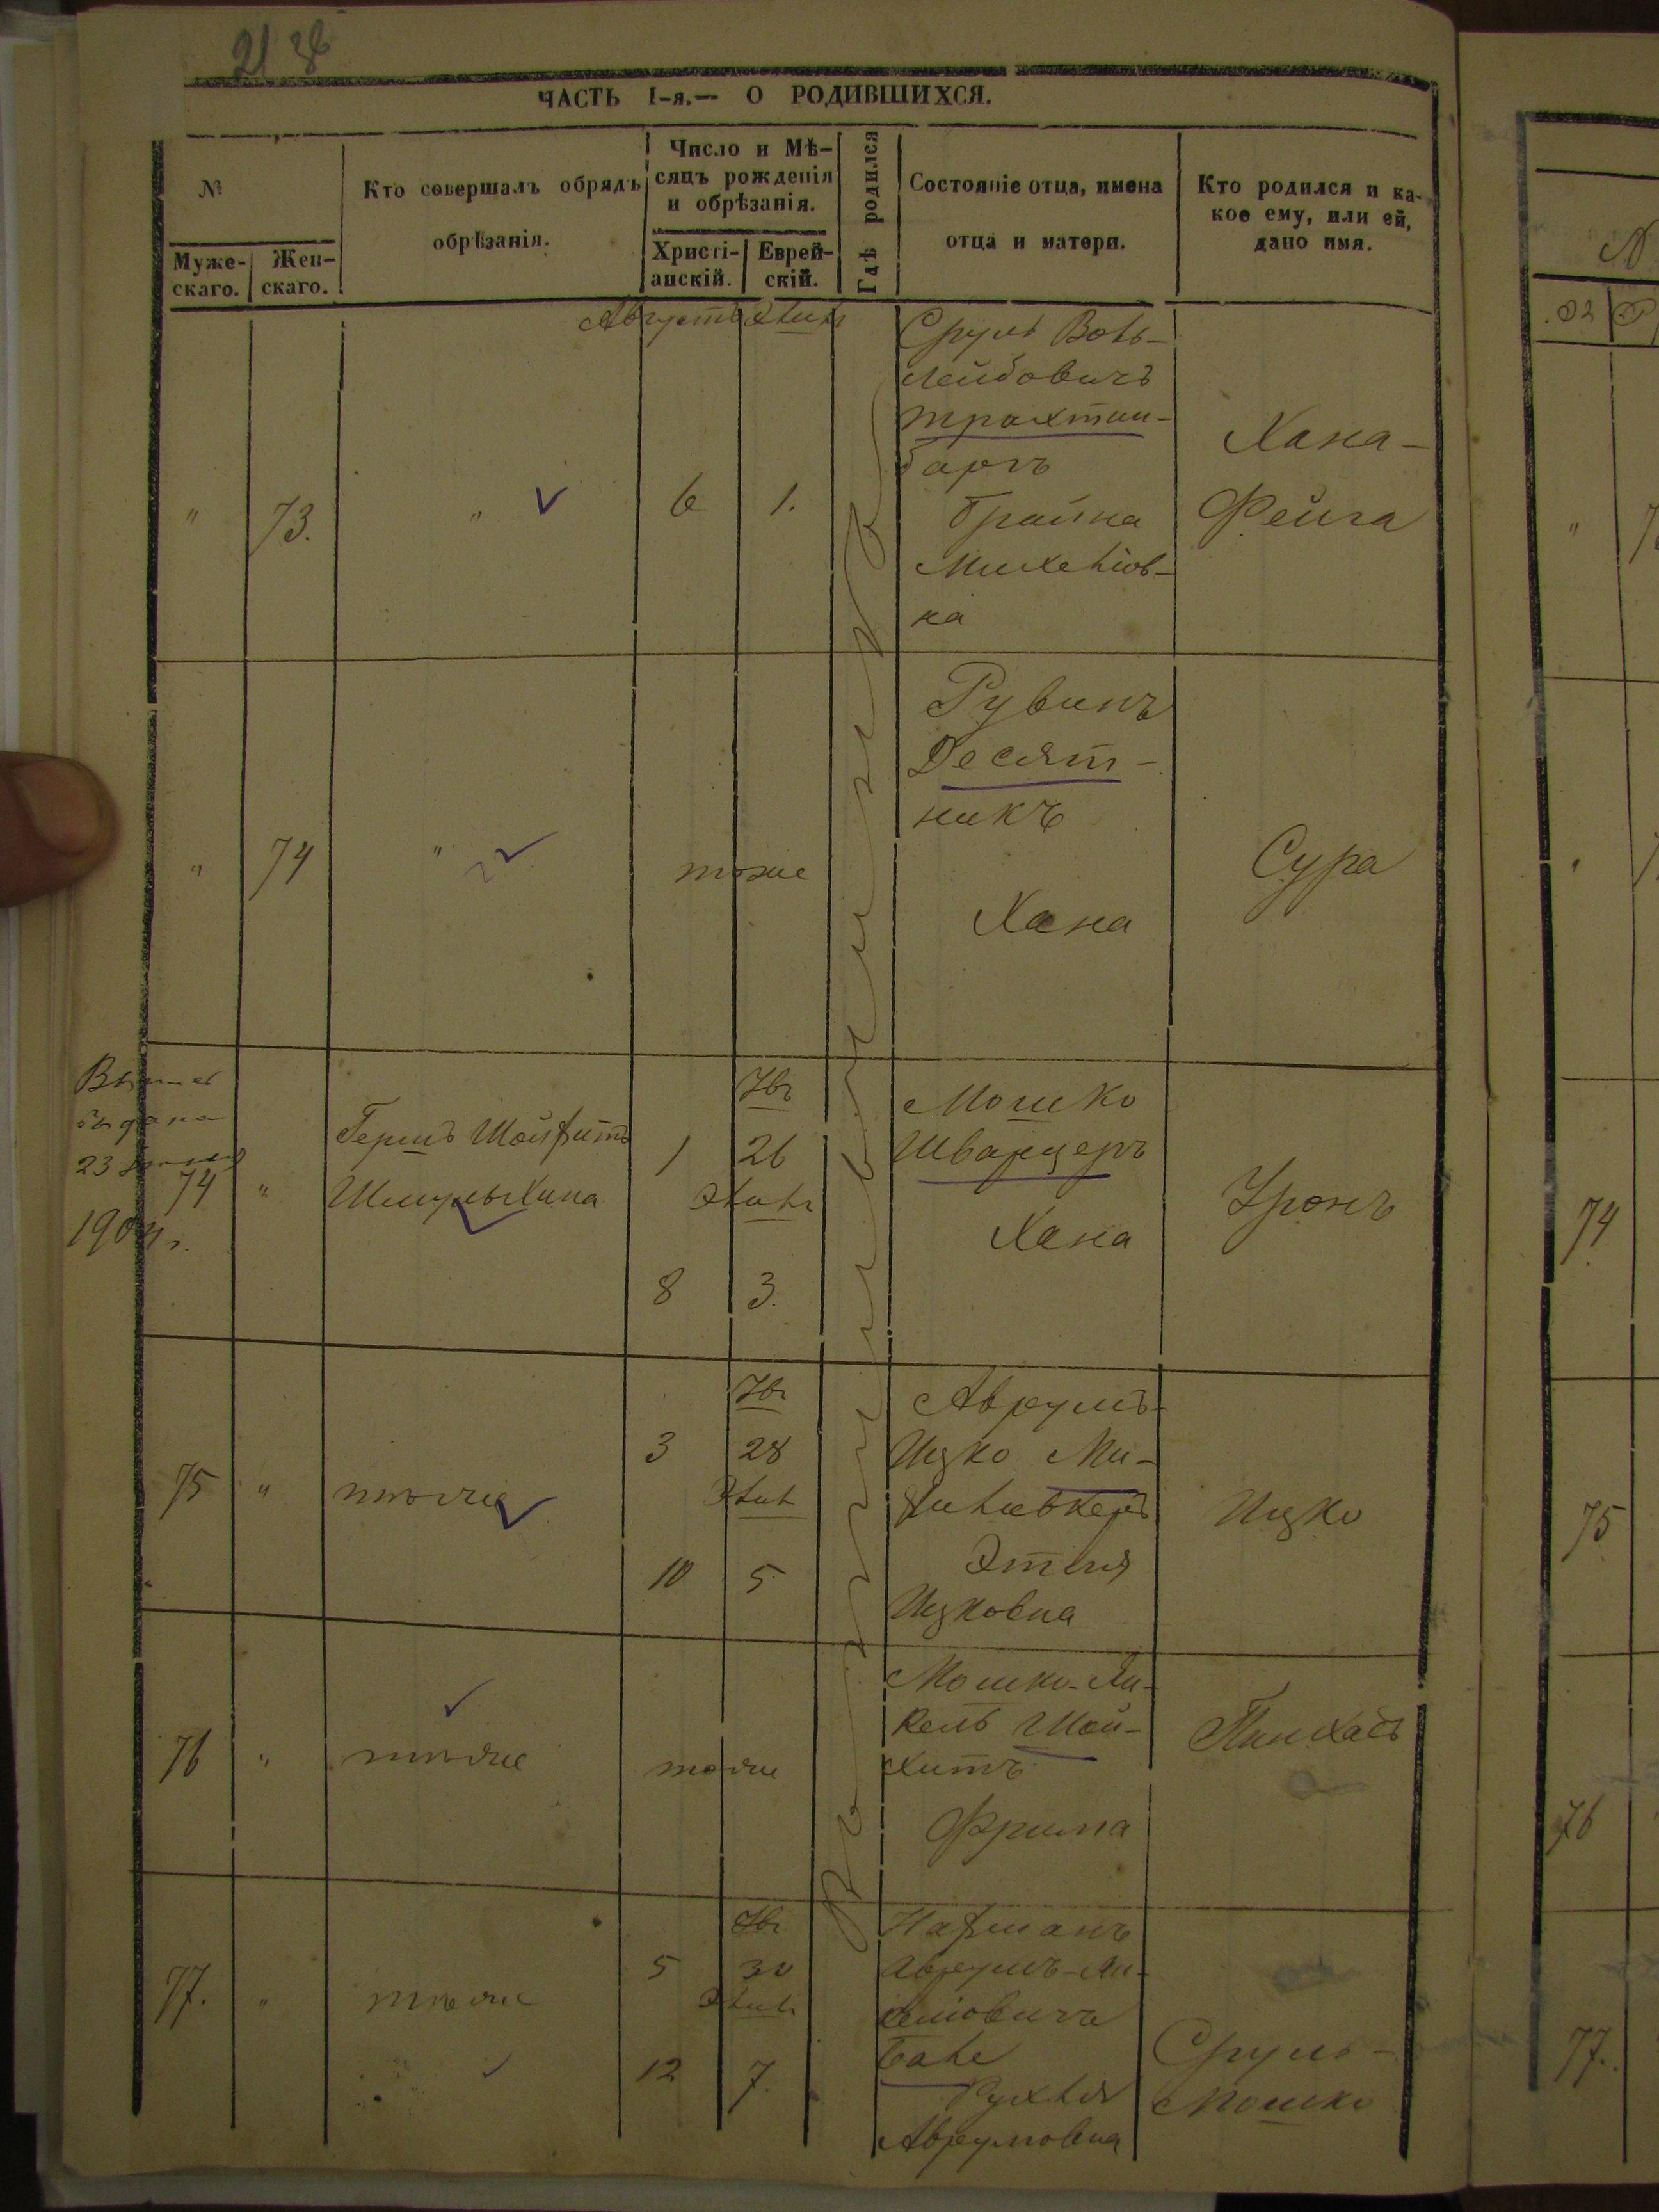 21 36
ЧАСТЬ I-я.— О РОДИВШИХСЯ.
№
Муже-
скаго.
Жен-
скаго.
Кто совершалъ обрядъ
обрѣзанія.
Число и Мѣ-
сяцъ рожденія
и обрѣзанія.
Христі-
анскій.
Еврей-
скій.
Гдѣ родился
Состояніе отца, имена
отца и матери.
Кто родился и ка-
кое ему, или ей,
дано имя.
Августъ Элилъ
" 73. " 6 1.
Сруль Воль-
Лейбовичъ
Трахтин-
барг
Брайна
Михелiов-
на
Хана-
Фейга
" 74 " тоже
Рувинъ
Десят-
никъ
Хана
Сура
выдана
23
1904 г.
74 "
Гершъ Шойхитъ
Шмулыхина
1 26
Элилъ
8 3.
Мошко
Шварцеръ
Хана
Уронъ
75 " тоже
3 28
Элил
10 5
Аврумъ-
Ицко Ми-
Этля
Ицковна
Ицко
76 " тоже тоже
Мошко-Ян-
кель Шой-
хитъ
Фрима
Пинхасъ
77. " тоже
5 30
Элилъ
12 7.
Нахманъ
Аврумъ-Ян-
келiовичъ
Бале
Рухля
Аврумовна
Сруль-
Мошко
74
75
76
77.